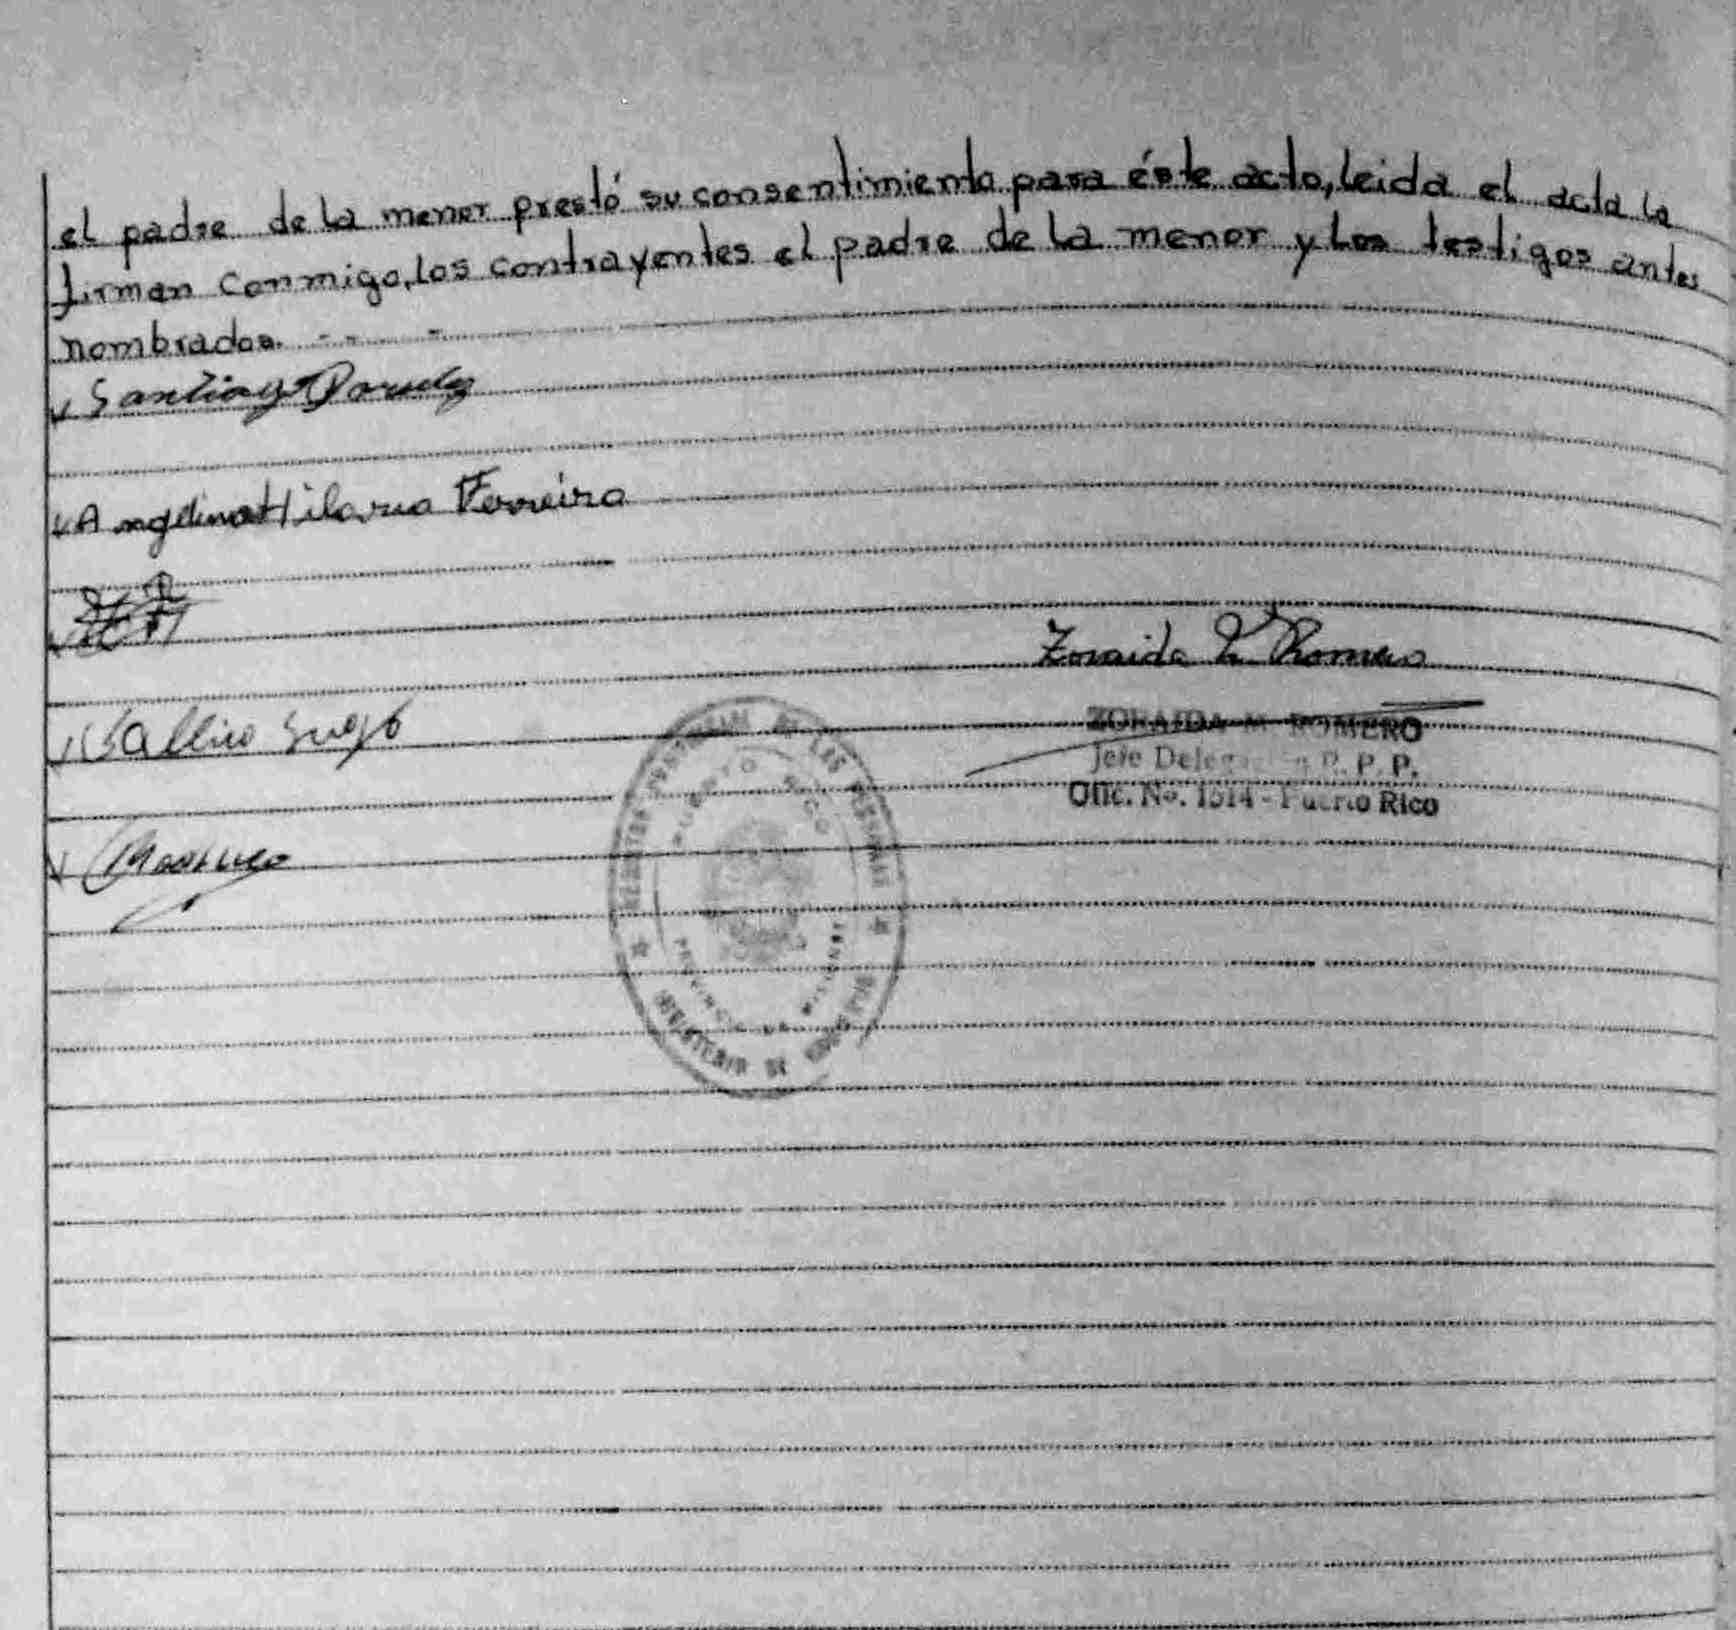 el padre de la menor prestó su consentimiento para éste acto, leida el acta la
firman conmigo, los contrayentes el padre de la menor y los testigos antes
nombrados. - - -
Santiago
Angelina Hilaria Ferreira
Zoraida M Romero
ZORAIDA M ROMERO
Jefe Delegación R. P. P.
Ofic. No. 1514 - Puerto Rico
REGISTRO PROVINCIAL DE LAS PERSONAS
PUERTO RICO
PROVINCIA DE MISIONES